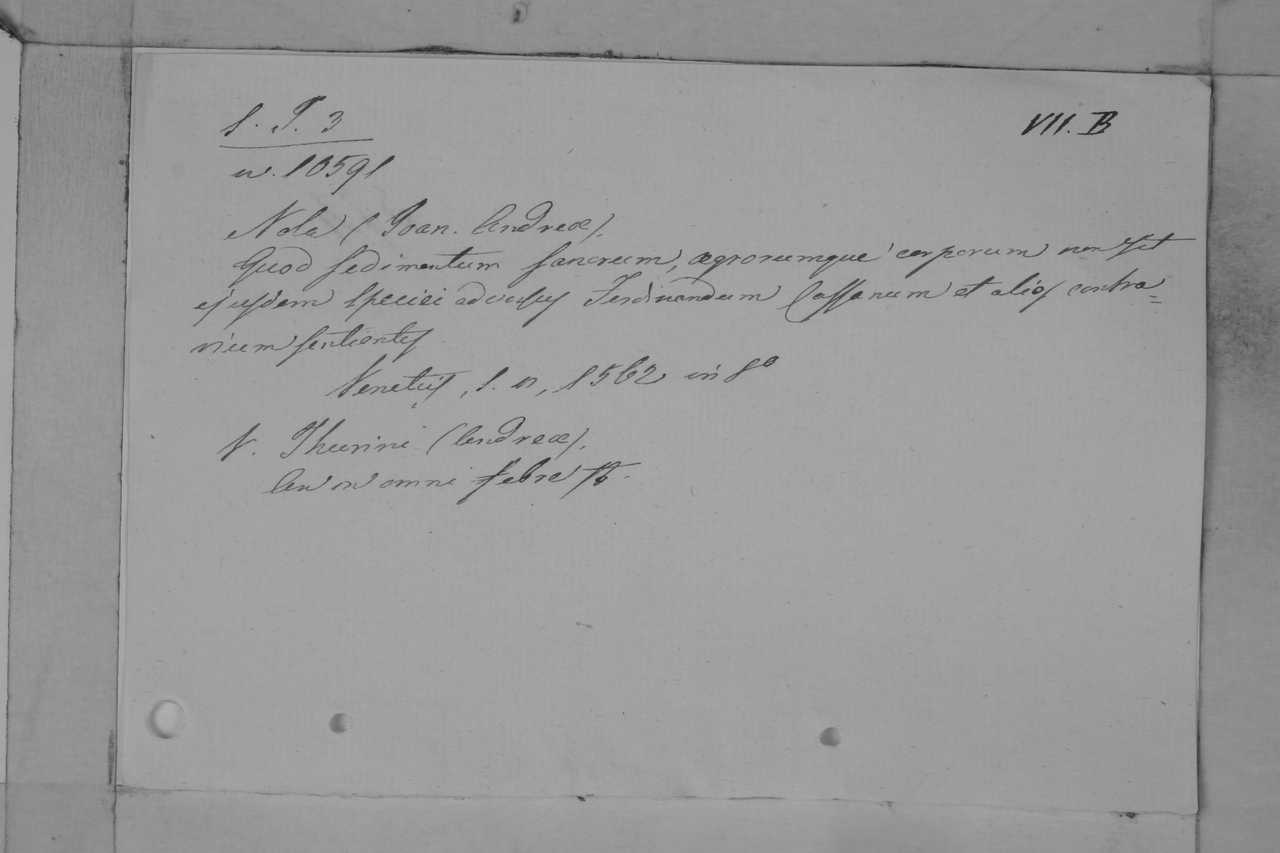 S. T. 3
n. 10591
VII. B
Nola (Joan. Andreæ).
Quod sedimentum sanorum, ægrorumque corporum non sit
ejusdem speciei adversus Ferdinandum Cassanum et alios contra=
rium sentientes
Venetiis, s. n, 1562 in 8º
V. Thurini (Andreæ).
An in omni febre